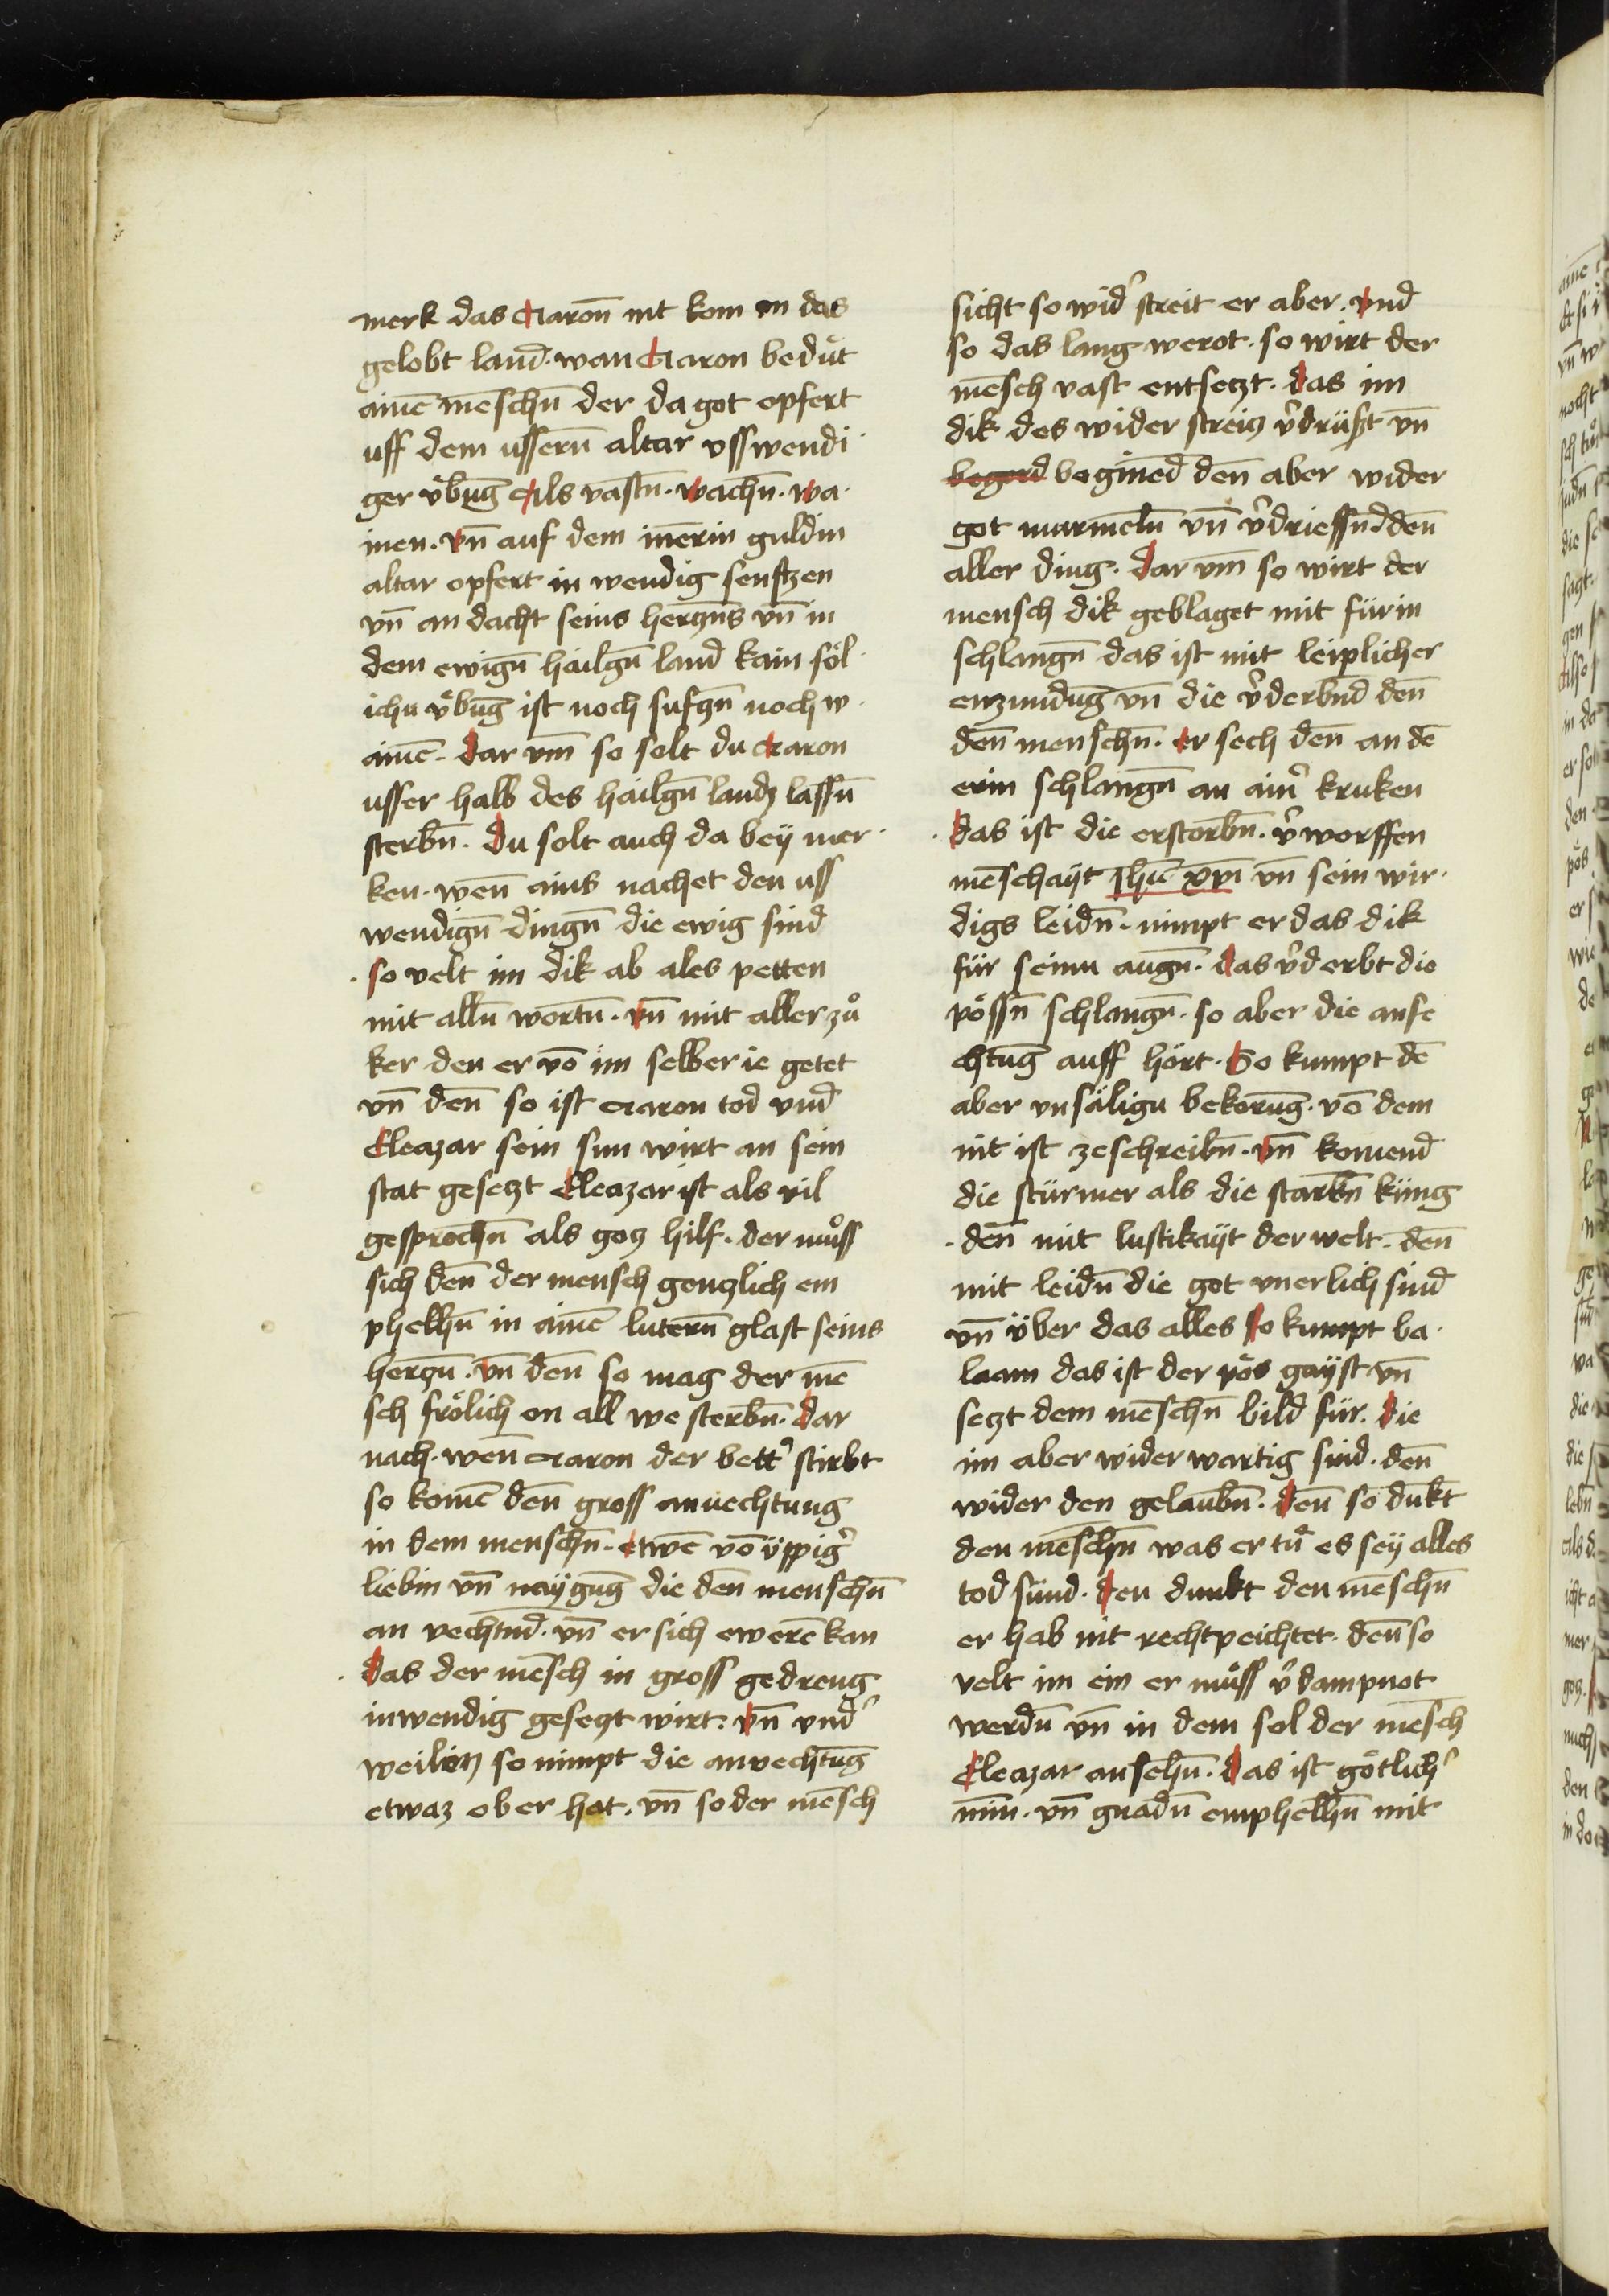 merk das Aaron̄ nit kom in das
gelobt land̄. wan Aaron bedüt
ainē mēschn̄ der da got opfert
uff dem ussern̄ altar vsswendi
ger ůbūg Als vastn̄. wachn̄. wa
inen. vn̄ auf dem inērin guldin
altar opfert in wendig senftzen
vn̄ an dacht seins hertzn̄s vn̄ in
dem ewign̄ hailgn̄ land̄ kain söl
ichu ůbūg ist noch sufzn̄ noch w
ainē. Dar vm̄ so solt du Aaron
usser halb des hailgn̄ landz lassn̄
sterbn̄. Du solt auch da bey mer
ken. wen̄ ains nachet den uss
wendign̄ dingn̄ die ewig sind̄
so velt im dik ab ales petten
mit alln̄ wortn̄. vn̄ mit aller zů
ker den er vō im selber ie getet
vn̄ den̄ so ist Aaron tod vnd̄
Eleazar sein sun wirt an sein
stat gesetzt Eleazar ist als vil
gesprochn̄ als gotz hilf. der můss
sich den̄ der mensch gentzlich em
phelhn̄ in ainē lutern̄ glast seins
hertzn̄. vn̄ den̄ so mag der mē
sch frölich on all we sterbn̄. dar
nach. wen̄ Aaron der bett᾽ stirbt
so komē den̄ gross anuechtung
in dem menschn̄. etwē vō üppig᾽
liebin vn̄ naygūg die den̄ menschn̄
an vechtnd̄. vn̄ er sich ewerē kan
das der mēsch in gross gedreng
inwendig gesetzt wirt. vn̄ vnd᾽
weiln so nimpt die anvechtūg
etwaz ober hat. vn̄ so der mēsch
sicht so wid᾽ streit er aber. vnd̄
so das lang werot. so wirt der
mēsch vast entsetzt. das im
dik des wider streitz v᾽drüst vn̄
begerd beginēd den̄ aber wider
got murmeln̄ vn̄ v᾽driessnd den̄
aller ding. Dar vm̄ so wirt der
mensch dik geblaget mit fürin
schlangn̄ das ist mit leiplicher
enzundūg vn̄ die v᾽derbnd̄ den̄
den̄ menschn̄. er sech den̄ an dē
erin schlangn̄ an ain᾽ kruken
das ist die erstorbn̄. v᾽worffen
mēschayt Jhū xp̄i vn̄ sein wir
digs leidn̄. nimpt er das dik
für seinu augn̄. das v᾽derbt die
pössn̄ schlangn̄. so aber die anfe
chtūg auff hört. So kumpt dē
aber vnsäligu bekorūg. vō dem
nit ist zeschreibn̄. vn̄ komend̄
die stürmer als die starkn̄ küng
den̄ mit lustikayt der welt. den̄
mit leidn̄ die got vnerlich sind̄
vn̄ über das alles so kumpt ba
laam das ist der pös gayst vn̄
setzt dem mēschn̄ bild für. die
im aber wider wartig sind. den̄
wider den gelaubn̄. den̄ so dukt
den mēschn̄ was er tů es sey alles
tod sünd. den dunkt den mēschn̄
er hab nit recht peichtet. den̄ so
velt im ein er můss v᾽dampnot
werdn̄ vn̄ in dem sol der mēsch
Eleazar ansehn̄. das ist götlich᾽
min̄. vn̄ gnadn̄ emphelhn̄ mit